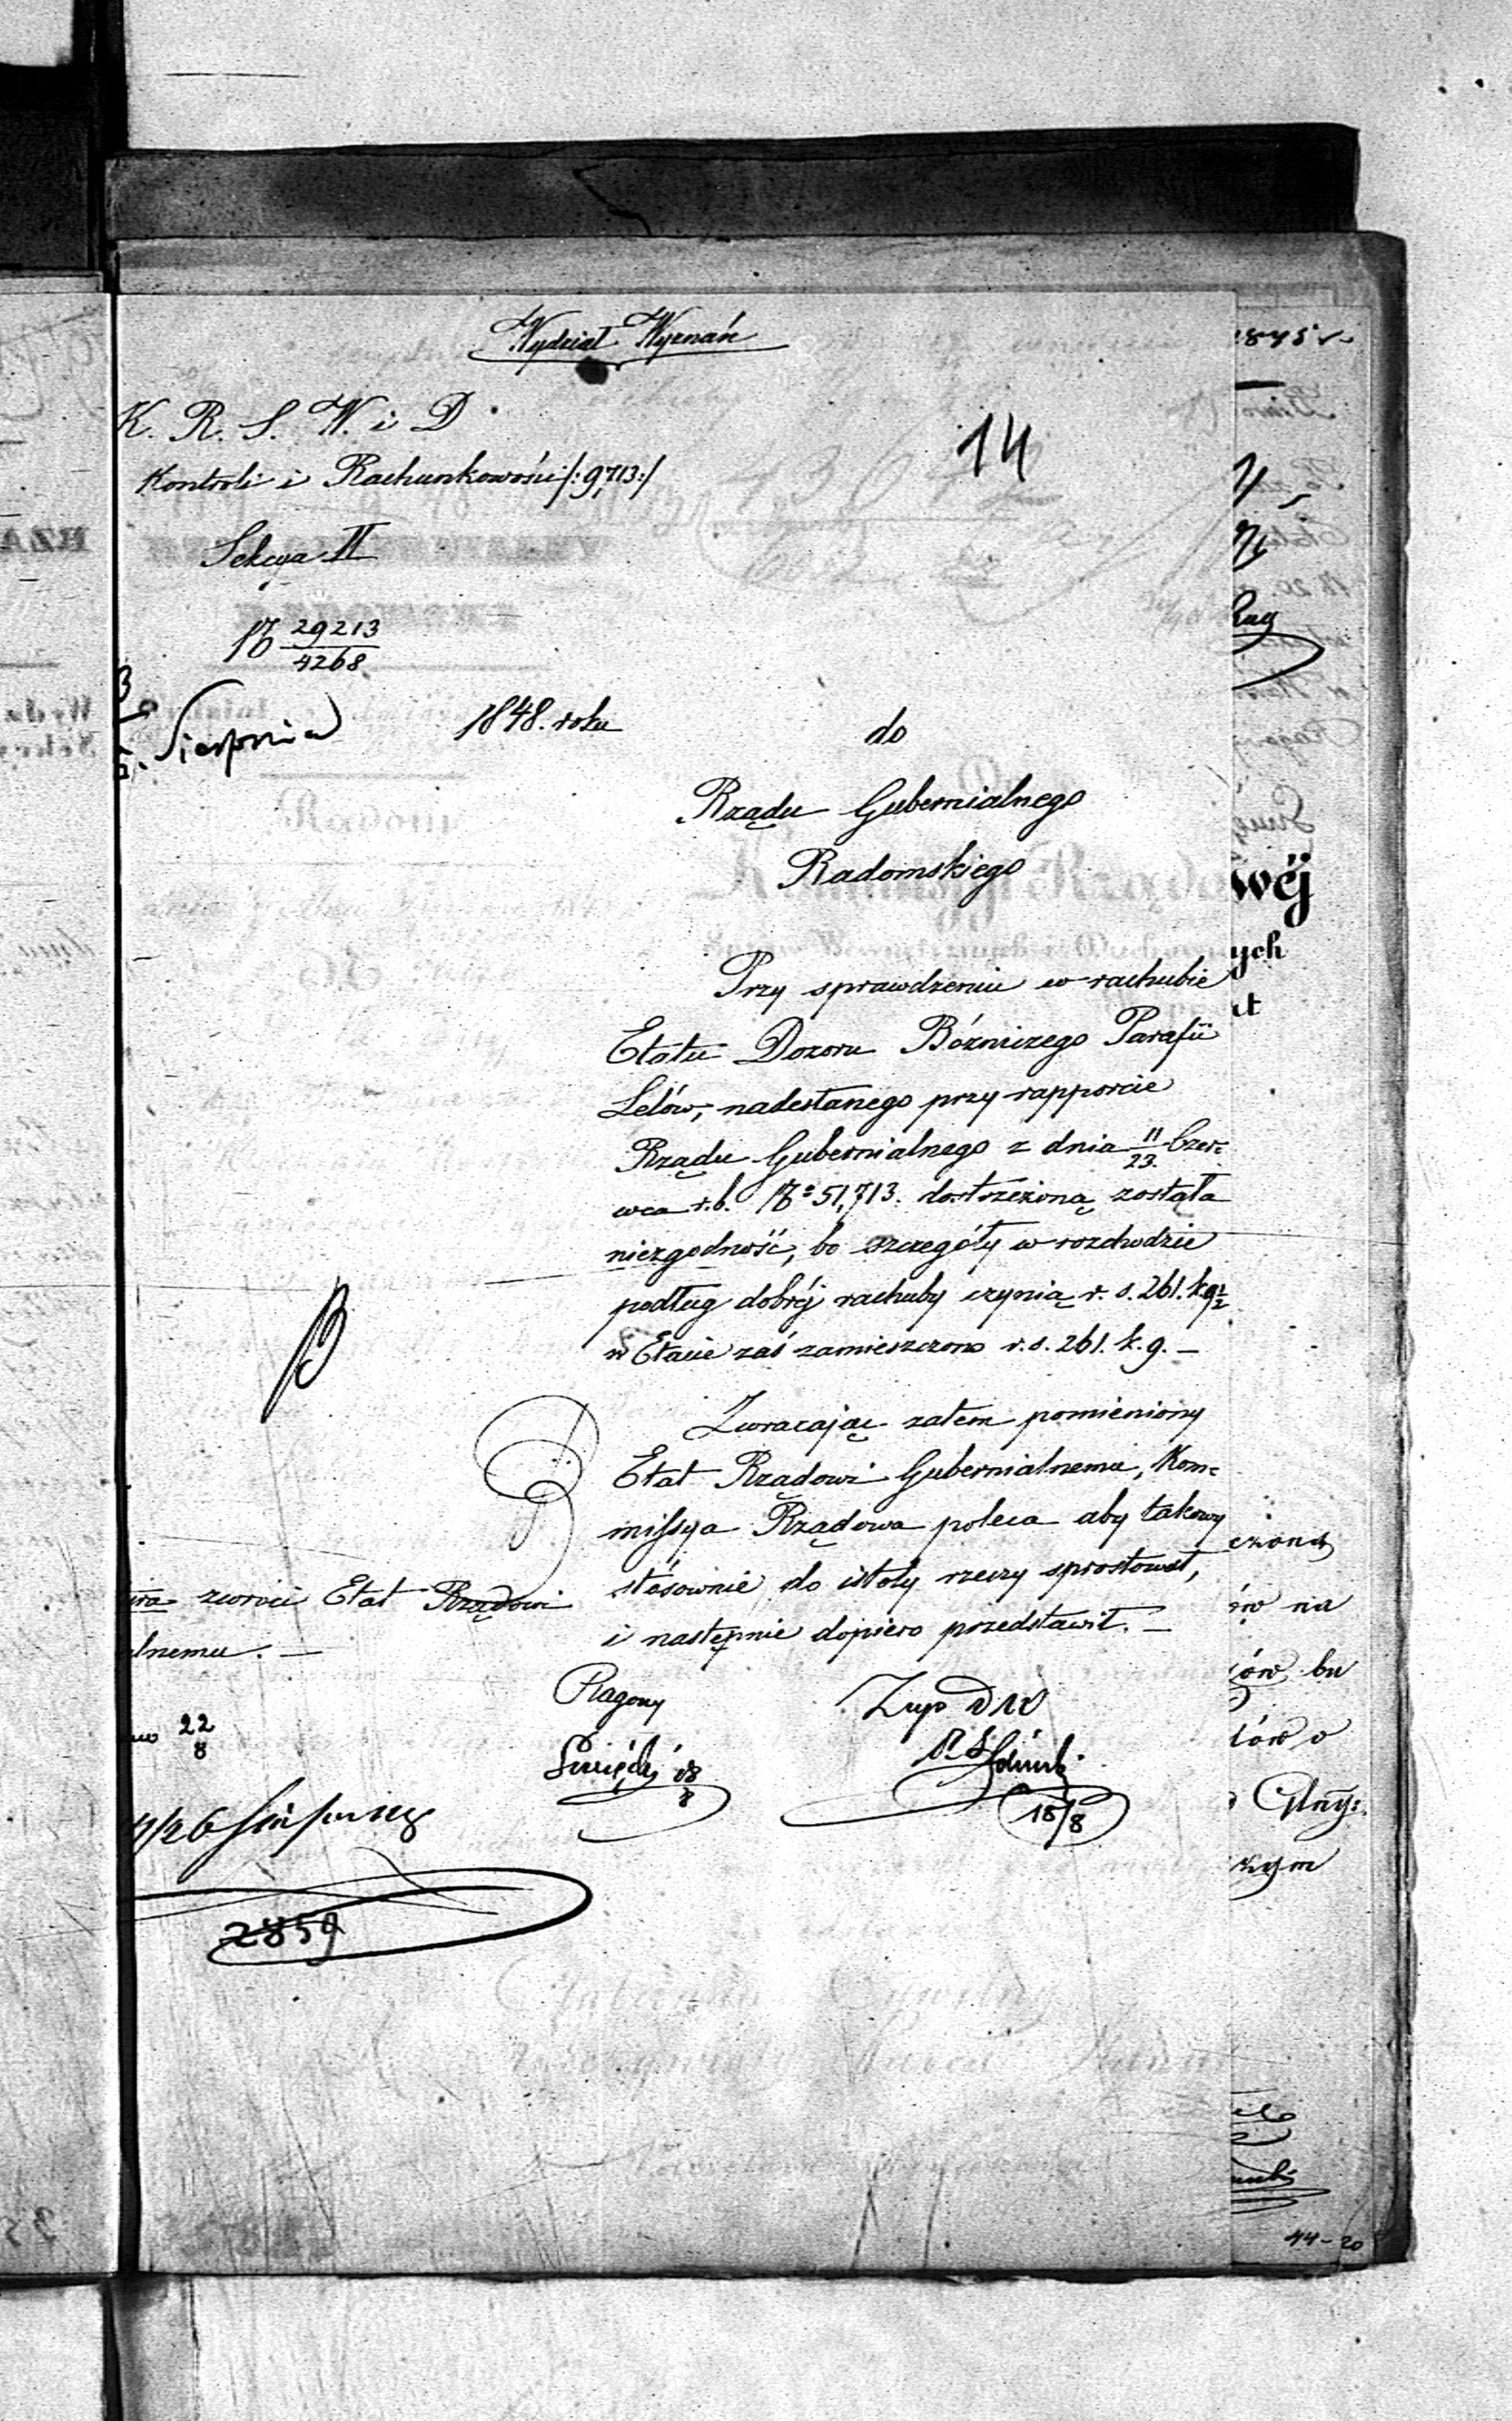 Wydział Wyznań
K. R. S. W. i D.
Kontroli i Rachunkowości /:9,713:/
14
Sekcya II
№ 29213/4268
Sierpnia 1848. roku
do
Rządu Gubernialnego
Radomskiego
Przy sprawdzeniu w rachubie
Etatu Dozoru Bóżniczego Parafii
Lelów, nadesłanego przy rapporcie
Rządu Gubernialnego z dnia 11/23. Czer=
wca r.b. № 51,713. dostrzeżoną została
niezgodność, bo szczegóły w rozchodzie
podług dobréj rachuby czynią r. s. 261. k. 9½
w Etacie zaś zamieszczono r. s. 261. k. 9. —
Zwracając zatem pomieniony
Etat Rządowi Gubernialnemu, Kom=
missya Rządowa poleca aby takowy
stósownie do istoty rzeczy sprostował,
i następnie dopiero przedstawił. —
zwróci Etat Rządowi
alnemu. —
22/8
18/8
2859
1845 r.
wéj
ych
44-20